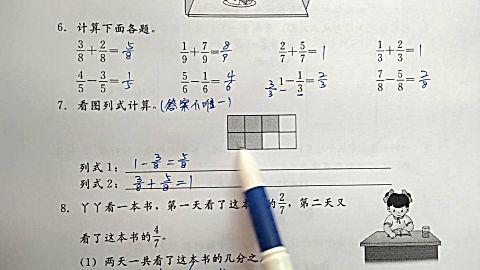 6. 计算下面各题。
3/8+2/8=5/8 1/9+7/9=8/9 2/7+5/7=1 1/3+2/3=1
4/5-3/5=1/5 5/6-1/6=4/6 3/3 1-1/3=2/3 7/8-5/8=2/8
7. 看图列式计算。(答案不唯一)
列式1: 1-3/8=5/8
列式2: 3/8+5/8=1
8. 丫丫看一本书,第一天看了这本书的2/7,第二天又
看了这本书的4/7。
(1) 两天一共看了这本书的几分之